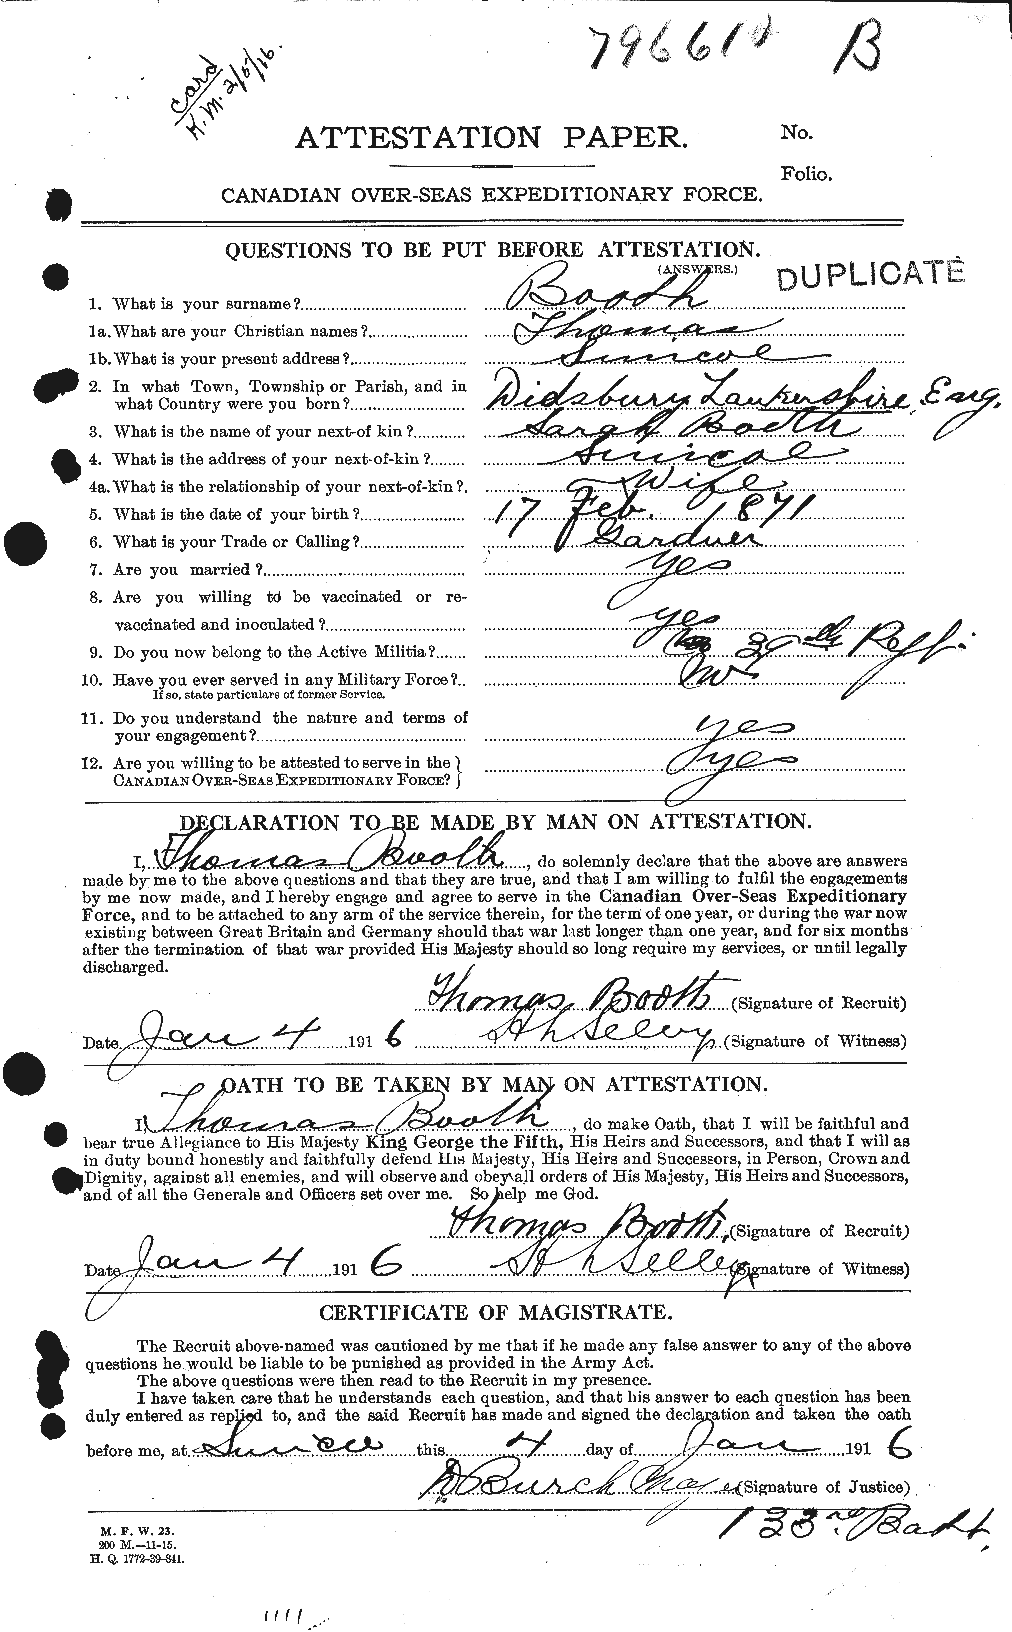 796610 B
card
K.M. 2/5/16.
ATTESTATION PAPER.
No.
Folio.
CANADIAN OVER-SEAS EXPEDITIONARY FORCE.
QUESTIONS TO BE PUT BEFORE ATTESTATION.
(ANSWERS.)
DUPLICATE
1. What is your surname? Booth
1a. What are your Christian names? Thomas
1b. What is your present address? Simcoe
2. In what Town, Township or Parish, and in
what Country were you born? Didsbury Lankershire, Eng.
3. What is the name of your next-of kin? Sarah Booth
4. What is the address of your next-of-kin? Simcoe
4a. What is the relationship of your next-of-kin? Wife
5. What is the date of your birth? 17 Feb. 1871
6. What is your Trade or Calling? Gardner
7. Are you married? yes
8. Are you willing to be vaccinated or re-
vaccinated and inoculated? yes
9. Do you now belong to the Active Militia? 39th Regt.
10. Have you ever served in any Military Force? No
If so, state particulars of former Service.
11. Do you understand the nature and terms of
your engagement? yes
12. Are you willing to be attested to serve in the
CANADIAN OVER-SEAS EXPEDITIONARY FORCE? yes
DECLARATION TO BE MADE BY MAN ON ATTESTATION.
I, Thomas Booth, do solemnly declare that the above are answers
made by me to the above questions and that they are true, and that I am willing to fulfil the engagements
by me now made, and I hereby engage and agree to serve in the Canadian Over-Seas Expeditionary
Force, and to be attached to any arm of the service therein, for the term of one year, or during the war now
existing between Great Britain and Germany should that war last longer than one year, and for six months
after the termination of that war provided His Majesty should so long require my services, or until legally
discharged.
Thomas Booth (Signature of Recruit)
Date Jan 4 1916 (Signature of Witness)
OATH TO BE TAKEN BY MAN ON ATTESTATION.
I, Thomas Booth, do make Oath, that I will be faithful and
bear true Allegiance to His Majesty King George the Fifth, His Heirs and Successors, and that I will as
in duty bound honestly and faithfully defend His Majesty, His Heirs and Successors, in Person, Crown and
Dignity, against all enemies, and will observe and obey all orders of His Majesty, His Heirs and Successors,
and of all the Generals and Officers set over me. So help me God.
Thomas Booth, (Signature of Recruit)
Date Jan 4 1916 (Signature of Witness)
CERTIFICATE OF MAGISTRATE.
The Recruit above-named was cautioned by me that if he made any false answer to any of the above
questions he would be liable to be punished as provided in the Army Act.
The above questions were then read to the Recruit in my presence.
I have taken care that he understands each question, and that his answer to each question has been
duly entered as replied to, and the said Recruit has made and signed the declaration and taken the oath
before me, at Simcoe this 4 day of Jan 1916
Burch (Signature of Justice)
133rd Batt.
M. F. W. 23.
200 M.—11-15.
H. Q. 1772-39-841.
1111